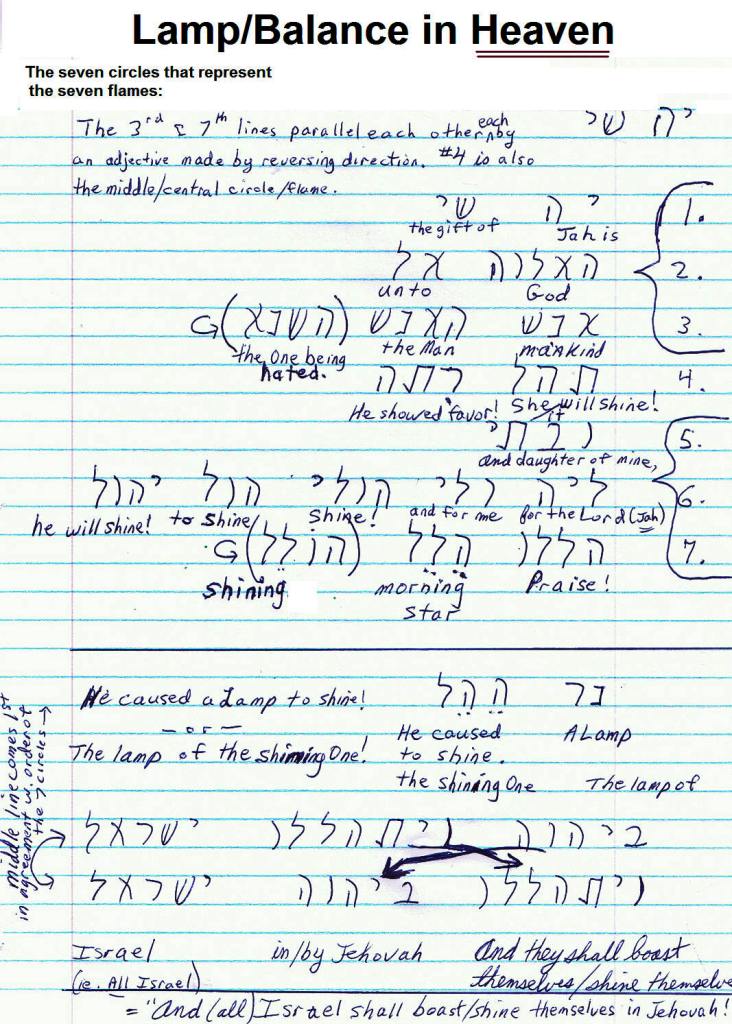 Lamp/Balance in Heaven
The seven circles that represent
the seven flames:
יה שי
The 3rd & 7th lines parallel each other each by
an adjective made by reversing direction. #4 is also
the middle/central circle/flame.
1. יה שי
Jah is the gift of
2. האלוה אל
God unto
3. אנש האנש (השנא)
mankind the Man the One being hated.
4. תהל
She/it will shine! He showed favor!
5. ובתי
and daughter of mine,
6. ליה ולי הולי הול יהול
for the Lord (Jah) and for me Shine! to shine/ he will shine!
7. הללו הלל (הולל)
Praise! morning star shining
נר ההל
He caused a Lamp to shine!
— or —
The lamp of the shining One!
A Lamp He caused to shine.
The lamp of the shining One
middle line comes 1st
in agreement w. order of
the 7 circles →
ביהוה ויתהללו ישראל
ויתהללו ביהוה ישראל
Israel in/by Jehovah And they shall boast
(ie. All Israel) themselves/shine themselve
= "And (all) Israel shall boast/shine themselves in Jehovah!